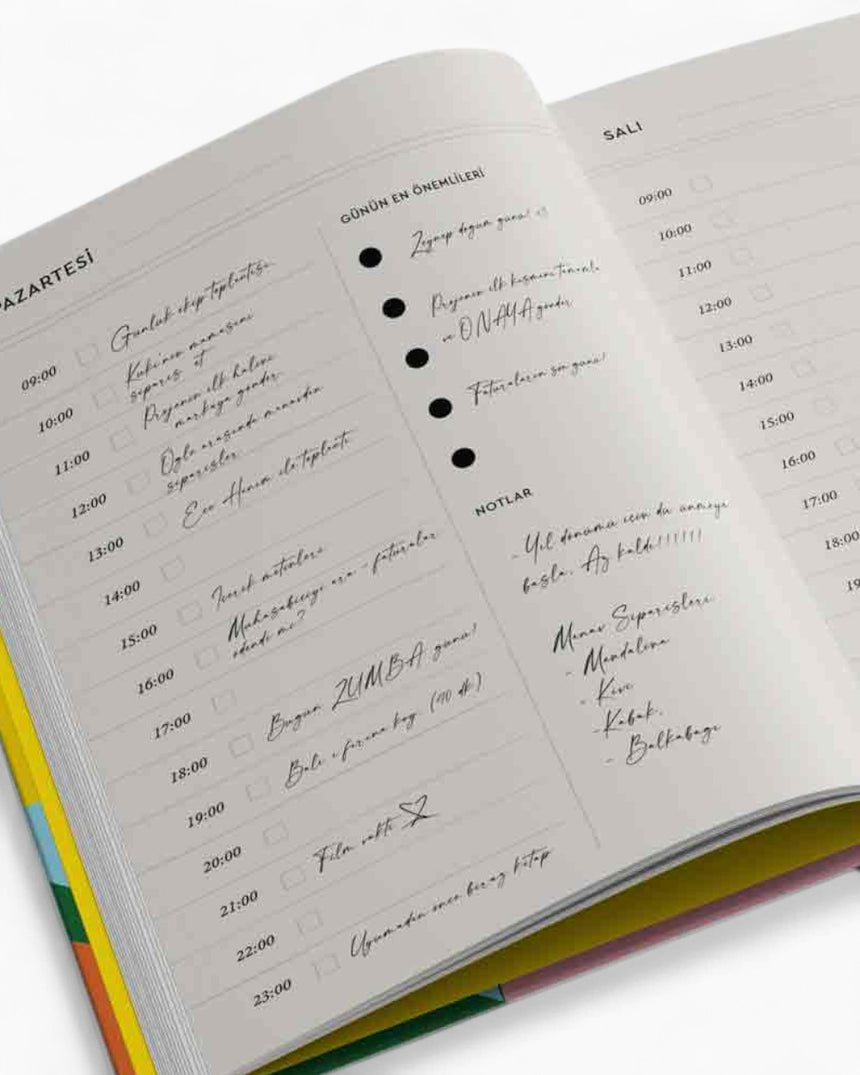 PAZARTESİ
09:00 Günlük ekip toplantısı
10:00 Kuki'nin mamasını
sipariş et
11:00 Projenin ilk halini
markaya gönder
12:00 Öğle arasında manavdan
siparişler
13:00 Ece Hanım ile toplantı
14:00
15:00 İçerik metinleri
16:00 Muhasabeciyi ara - faturalar
ödendi mi?
17:00
18:00 Bugün ZUMBA günü!
19:00 Balı ı fırına koy. (40 dk)
20:00
21:00 Film vakti
22:00
23:00 Uyumadan önce biraz kitap
GÜNÜN EN ÖNEMLİLERİ
Zeynep doğum günü!
Projenin ilk kısmını tamamla
ve ONAYA gönder
Faturaların son günü!
NOTLAR
- Yıl dönümü için düşünmeye
başla. Az kaldı!!!!!!
Manav Siparişleri
- Mandalina
- Kivi
- Kabak
- Balkabağı
SALI
09:00
10:00
11:00
12:00
13:00
14:00
15:00
16:00
17:00
18:00